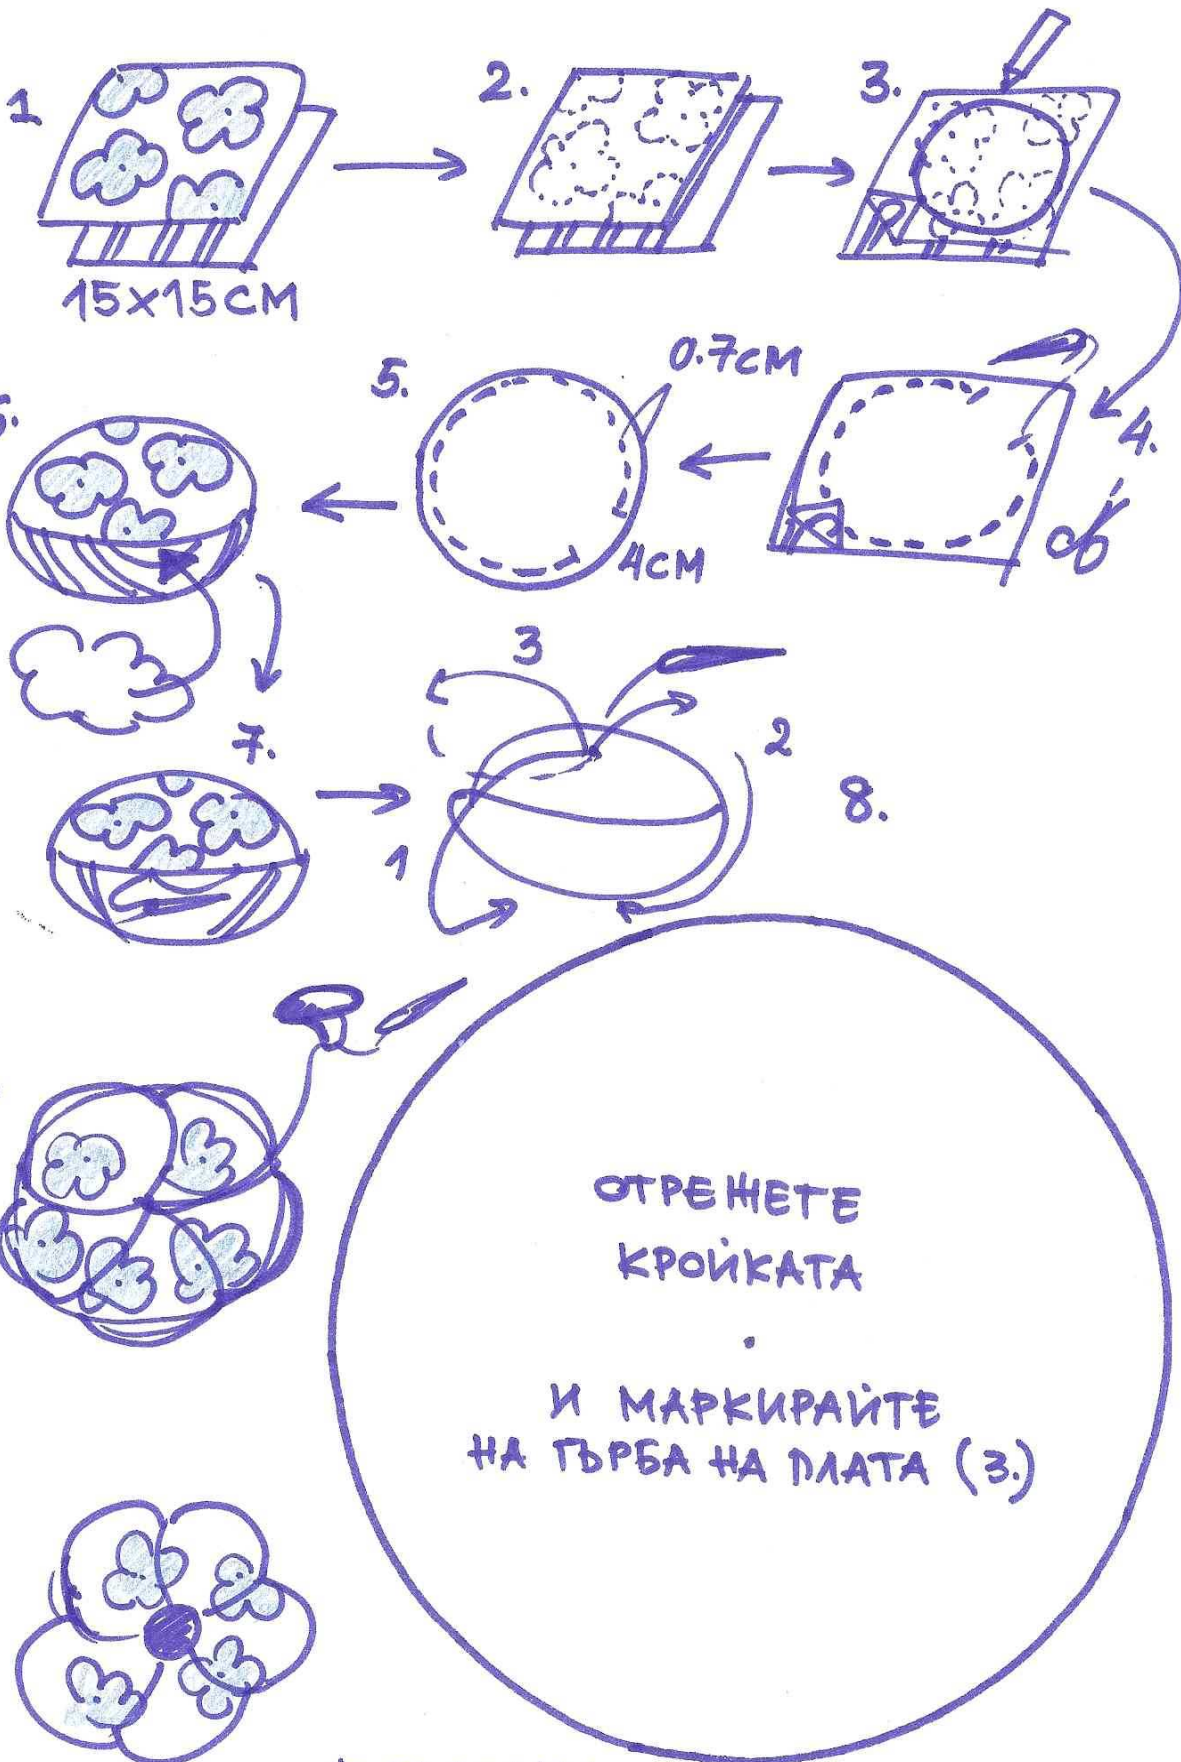 1.
2.
3.
15x15СМ
0.7СМ
5.
4.
4СМ
3
7.
2
1
8.
ОТРЕЖЕТЕ
КРОЙКАТА
И МАРКИРАЙТЕ
НА ГЪРБА НА ПЛАТА (3.)